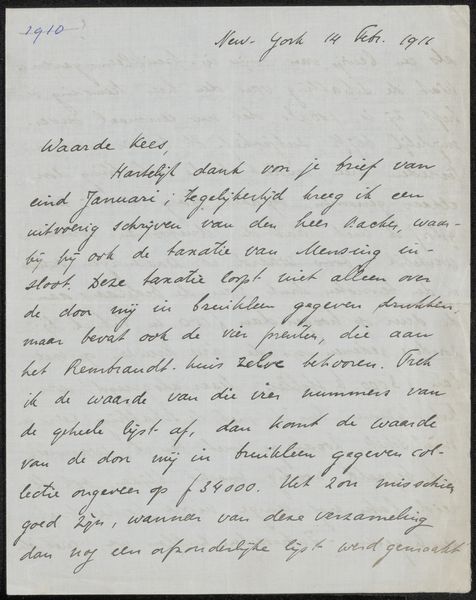 1910
New-York 14 Febr. 1911
Waarde Kees,
Hartelijk dank voor je brief van
eind Januari; tegelijkertijd kreeg ik een
uitvoerig schrijven van den heer Backer, waar-
bij hij ook de taxatie van Mensing in-
sloot. Deze taxatie loopt niet alleen over
de door mij in bruikleen gegeven drukken,
maar bevat ook de vier prenten, die aan
het Rembrandt-huis zelve behooren. Trek
ik de waarde van die vier nummers van
de geheele lijst af, dan komt de waarde
van de door mij in bruikleen gegeven col-
lectie ongeveer op f 34000. Het zou misschien
goed zijn, wanneer van deze verzameling
dan nog een afzonderlijke lijst werd gemaakt